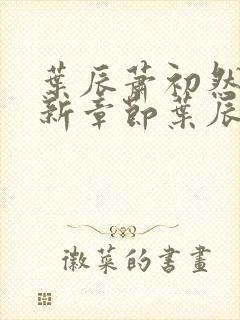 葉辰蕭初然
新章節葉辰
徽菜的書畫